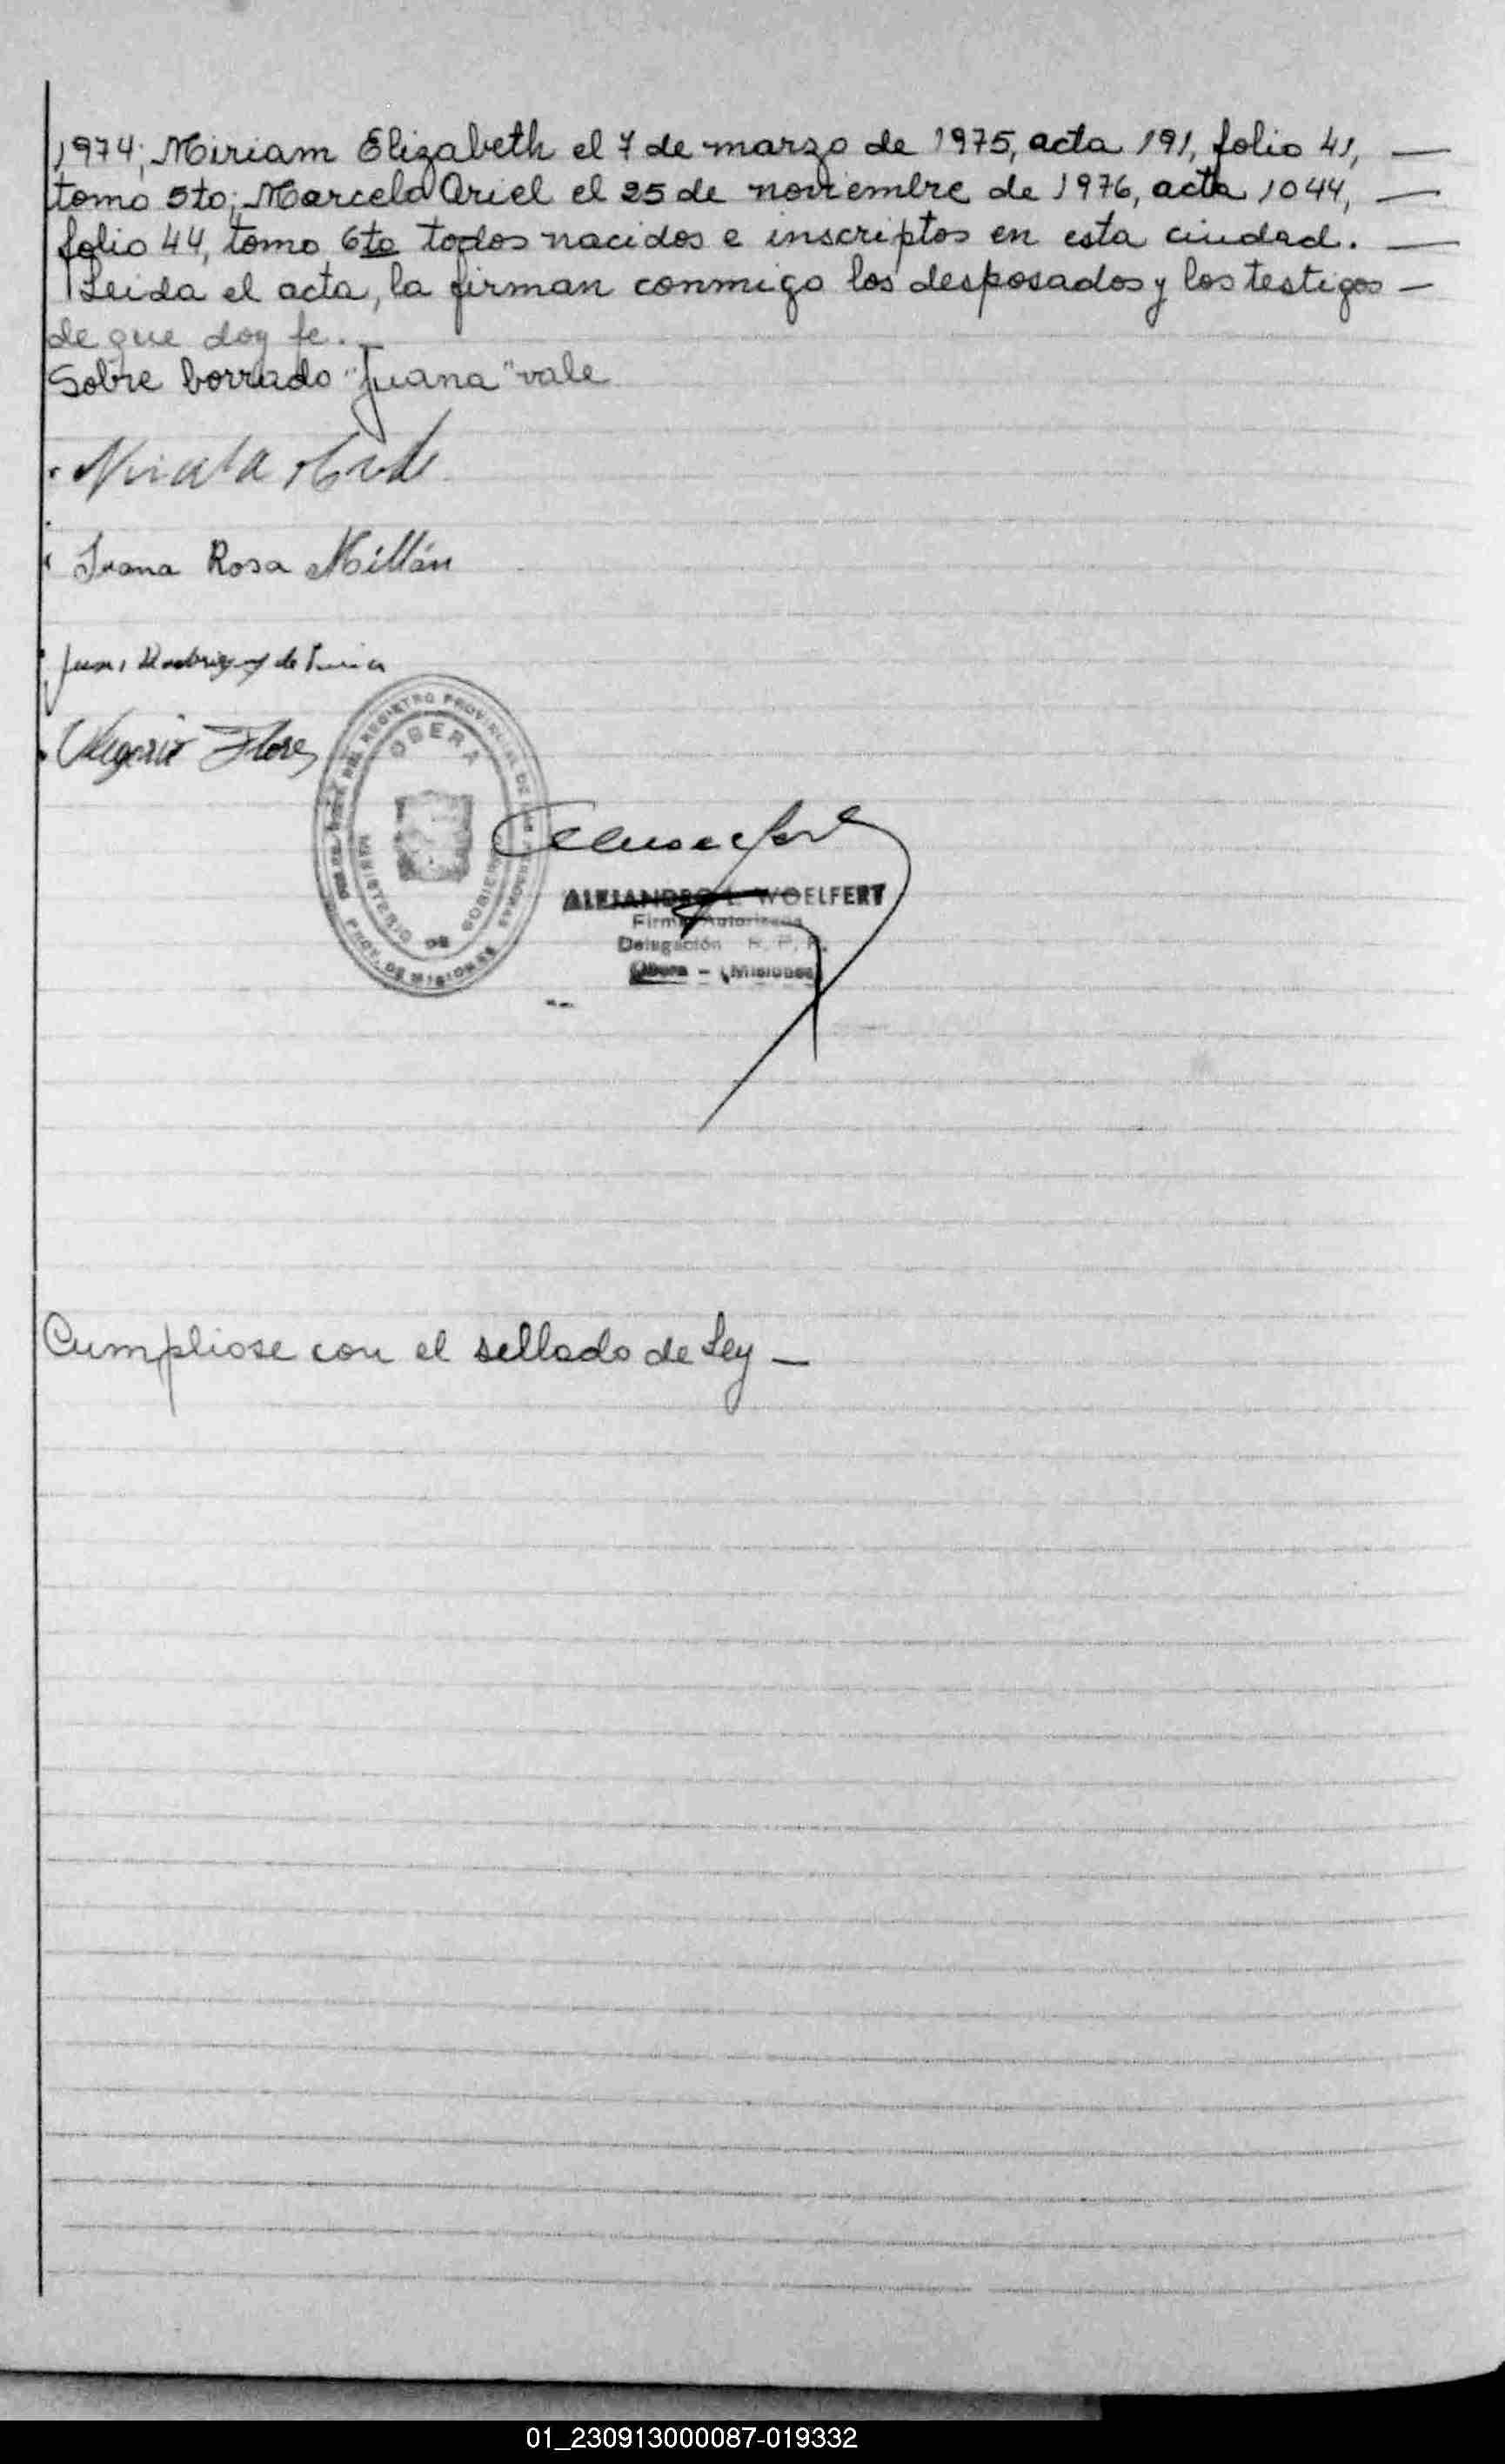 1974; Miriam Elizabeth el 7 de marzo de 1975, acta 191, folio 41, —
tomo 5to; Marcelo Ariel el 25 de noviembre de 1976, acta 1044, —
folio 44, tomo 6to todos nacidos e inscriptos en esta ciudad. —
Leida el acta, la firman conmigo los desposados y los testigos —
de que doy fe. —
Sobre borrado "Juana" vale
Juana Rosa Millán
Rodriguez de
Flores
REGISTRO PROVINCIAL DE LAS PERSONAS
OBERA
MINISTERIO DE GOBIERNO
PROV. DE MISIONES
ALEJANDRO L. WOELFERT
Firma Autorizada
Delegación R. P. P.
Obera - (Misiones)
Cumpliose con el sellado de Ley —
01_230913000087-019332